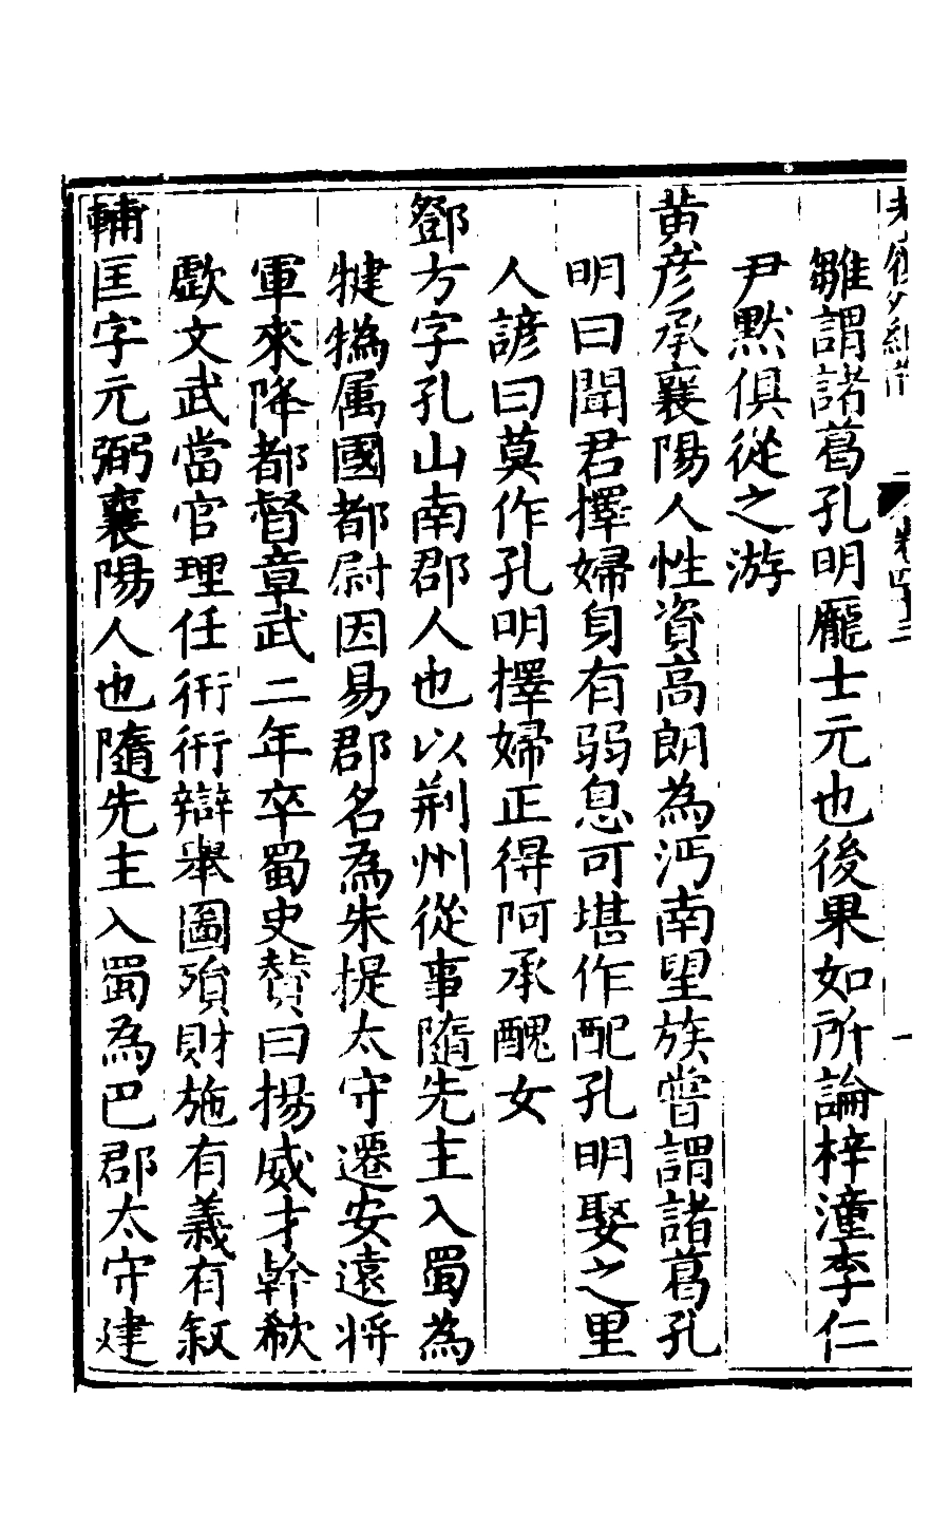 雛謂諸葛孔明龐士元也後果如所論梓潼李仁
尹黙俱從之游
黄彦承襄陽人性資高朗為沔南望族嘗謂諸葛孔
明曰聞君擇婦身有弱息可堪作配孔明娶之里
人諺曰莫作孔明擇婦正得阿承醜女
鄧方字孔山南郡人也以荆州從事隨先主入蜀為
犍為属國都尉因易郡名為朱提太守遷安遠將
軍來降都督章武二年卒蜀史賛曰揚威才幹欷
歔文武當官理任衎衎辯舉圖殞財施有義有叙
輔匡字元弼襄陽人也隨先主入蜀為巴郡太守建